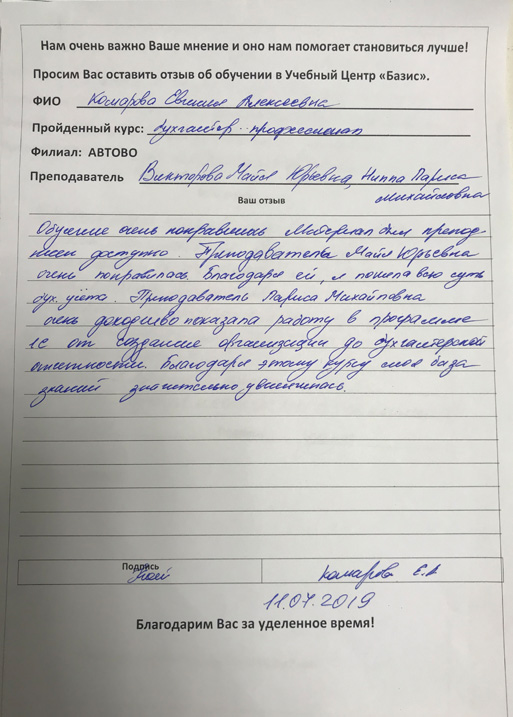 Нам очень важно Ваше мнение и оно нам помогает становиться лучше!
Просим Вас оставить отзыв об обучении в Учебный Центр «Базис».
ФИО Комарова Евгения Алексеевна
Пройденный курс: бухгалтер-профессионал
Филиал: АВТОВО
Преподаватель Викторова Майя Юрьевна, Ниппа Лариса
Михайловна
Ваш отзыв
Обучение очень понравилось Материал был препод-
несен доступно. Преподаватель Майя Юрьевна
очень понравилась. Благодаря ей, я поняла всю суть
бух. учёта. Преподаватель Лариса Михайловна
очень доходчиво показала работу в программе
1С от создания организации до бухгалтерской
отчетности. Благодаря этому курсу моя база
знаний значительно увеличилась.
Подпись
Комарова Е.А
11.07.2019
Благодарим Вас за уделенное время!